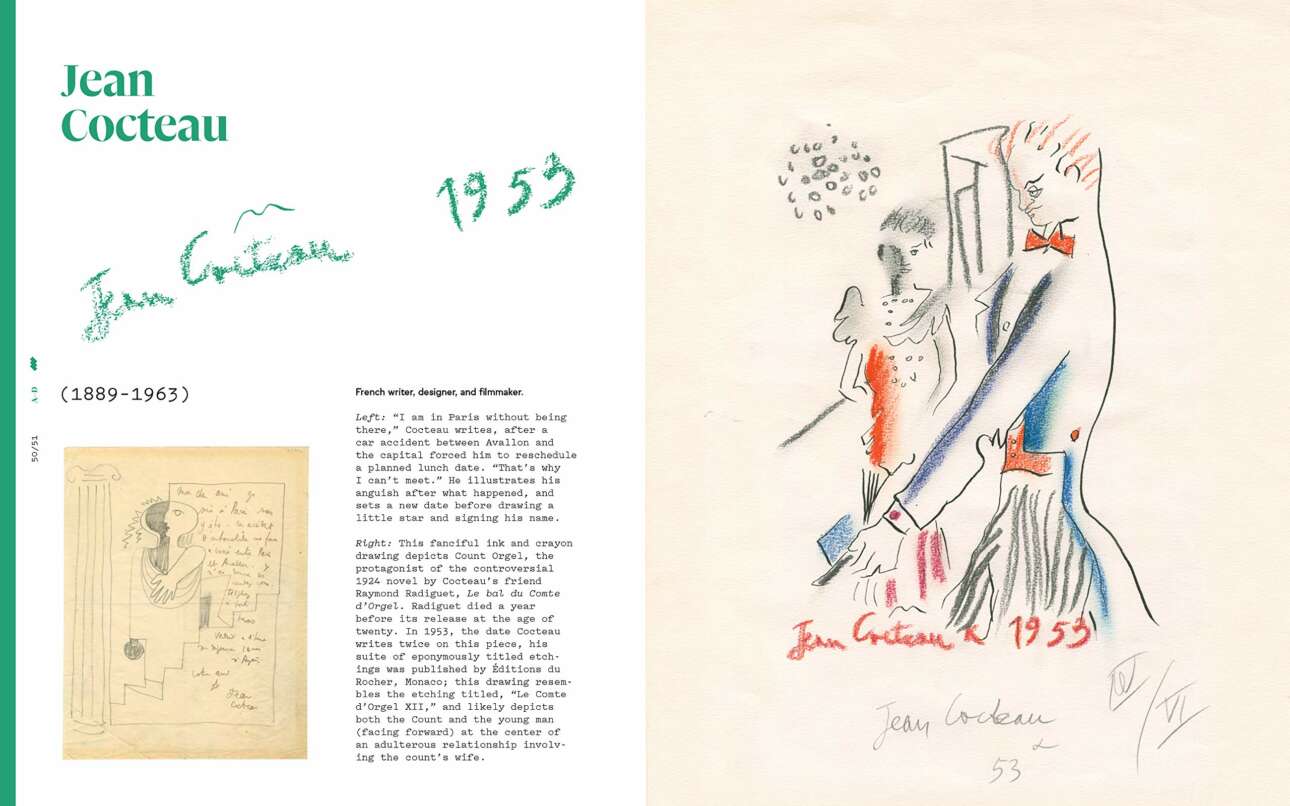 Jean
Cocteau
Jean Cocteau
1953
(1889-1963)
A-D
50/51
French writer, designer, and filmmaker.
Left: “I am in Paris without being
there,” Cocteau writes, after a
car accident between Avallon and
the capital forced him to reschedule
a planned lunch date. “That’s why
I can’t meet.” He illustrates his
anguish after what happened, and
sets a new date before drawing a
little star and signing his name.
Right: This fanciful ink and crayon
drawing depicts Count Orgel, the
protagonist of the controversial
1924 novel by Cocteau’s friend
Raymond Radiguet, Le bal du Comte
d’Orgel. Radiguet died a year
before its release at the age of
twenty. In 1953, the date Cocteau
writes twice on this piece, his
suite of eponymously titled etch-
ings was published by Éditions du
Rocher, Monaco; this drawing resem-
bles the etching titled, “Le Comte
d’Orgel XII,” and likely depicts
both the Count and the young man
(facing forward) at the center of
an adulterous relationship involv-
ing the count’s wife.
à Paris
Jean
Cocteau
Jean Cocteau 1953
Jean Cocteau
53
/VI